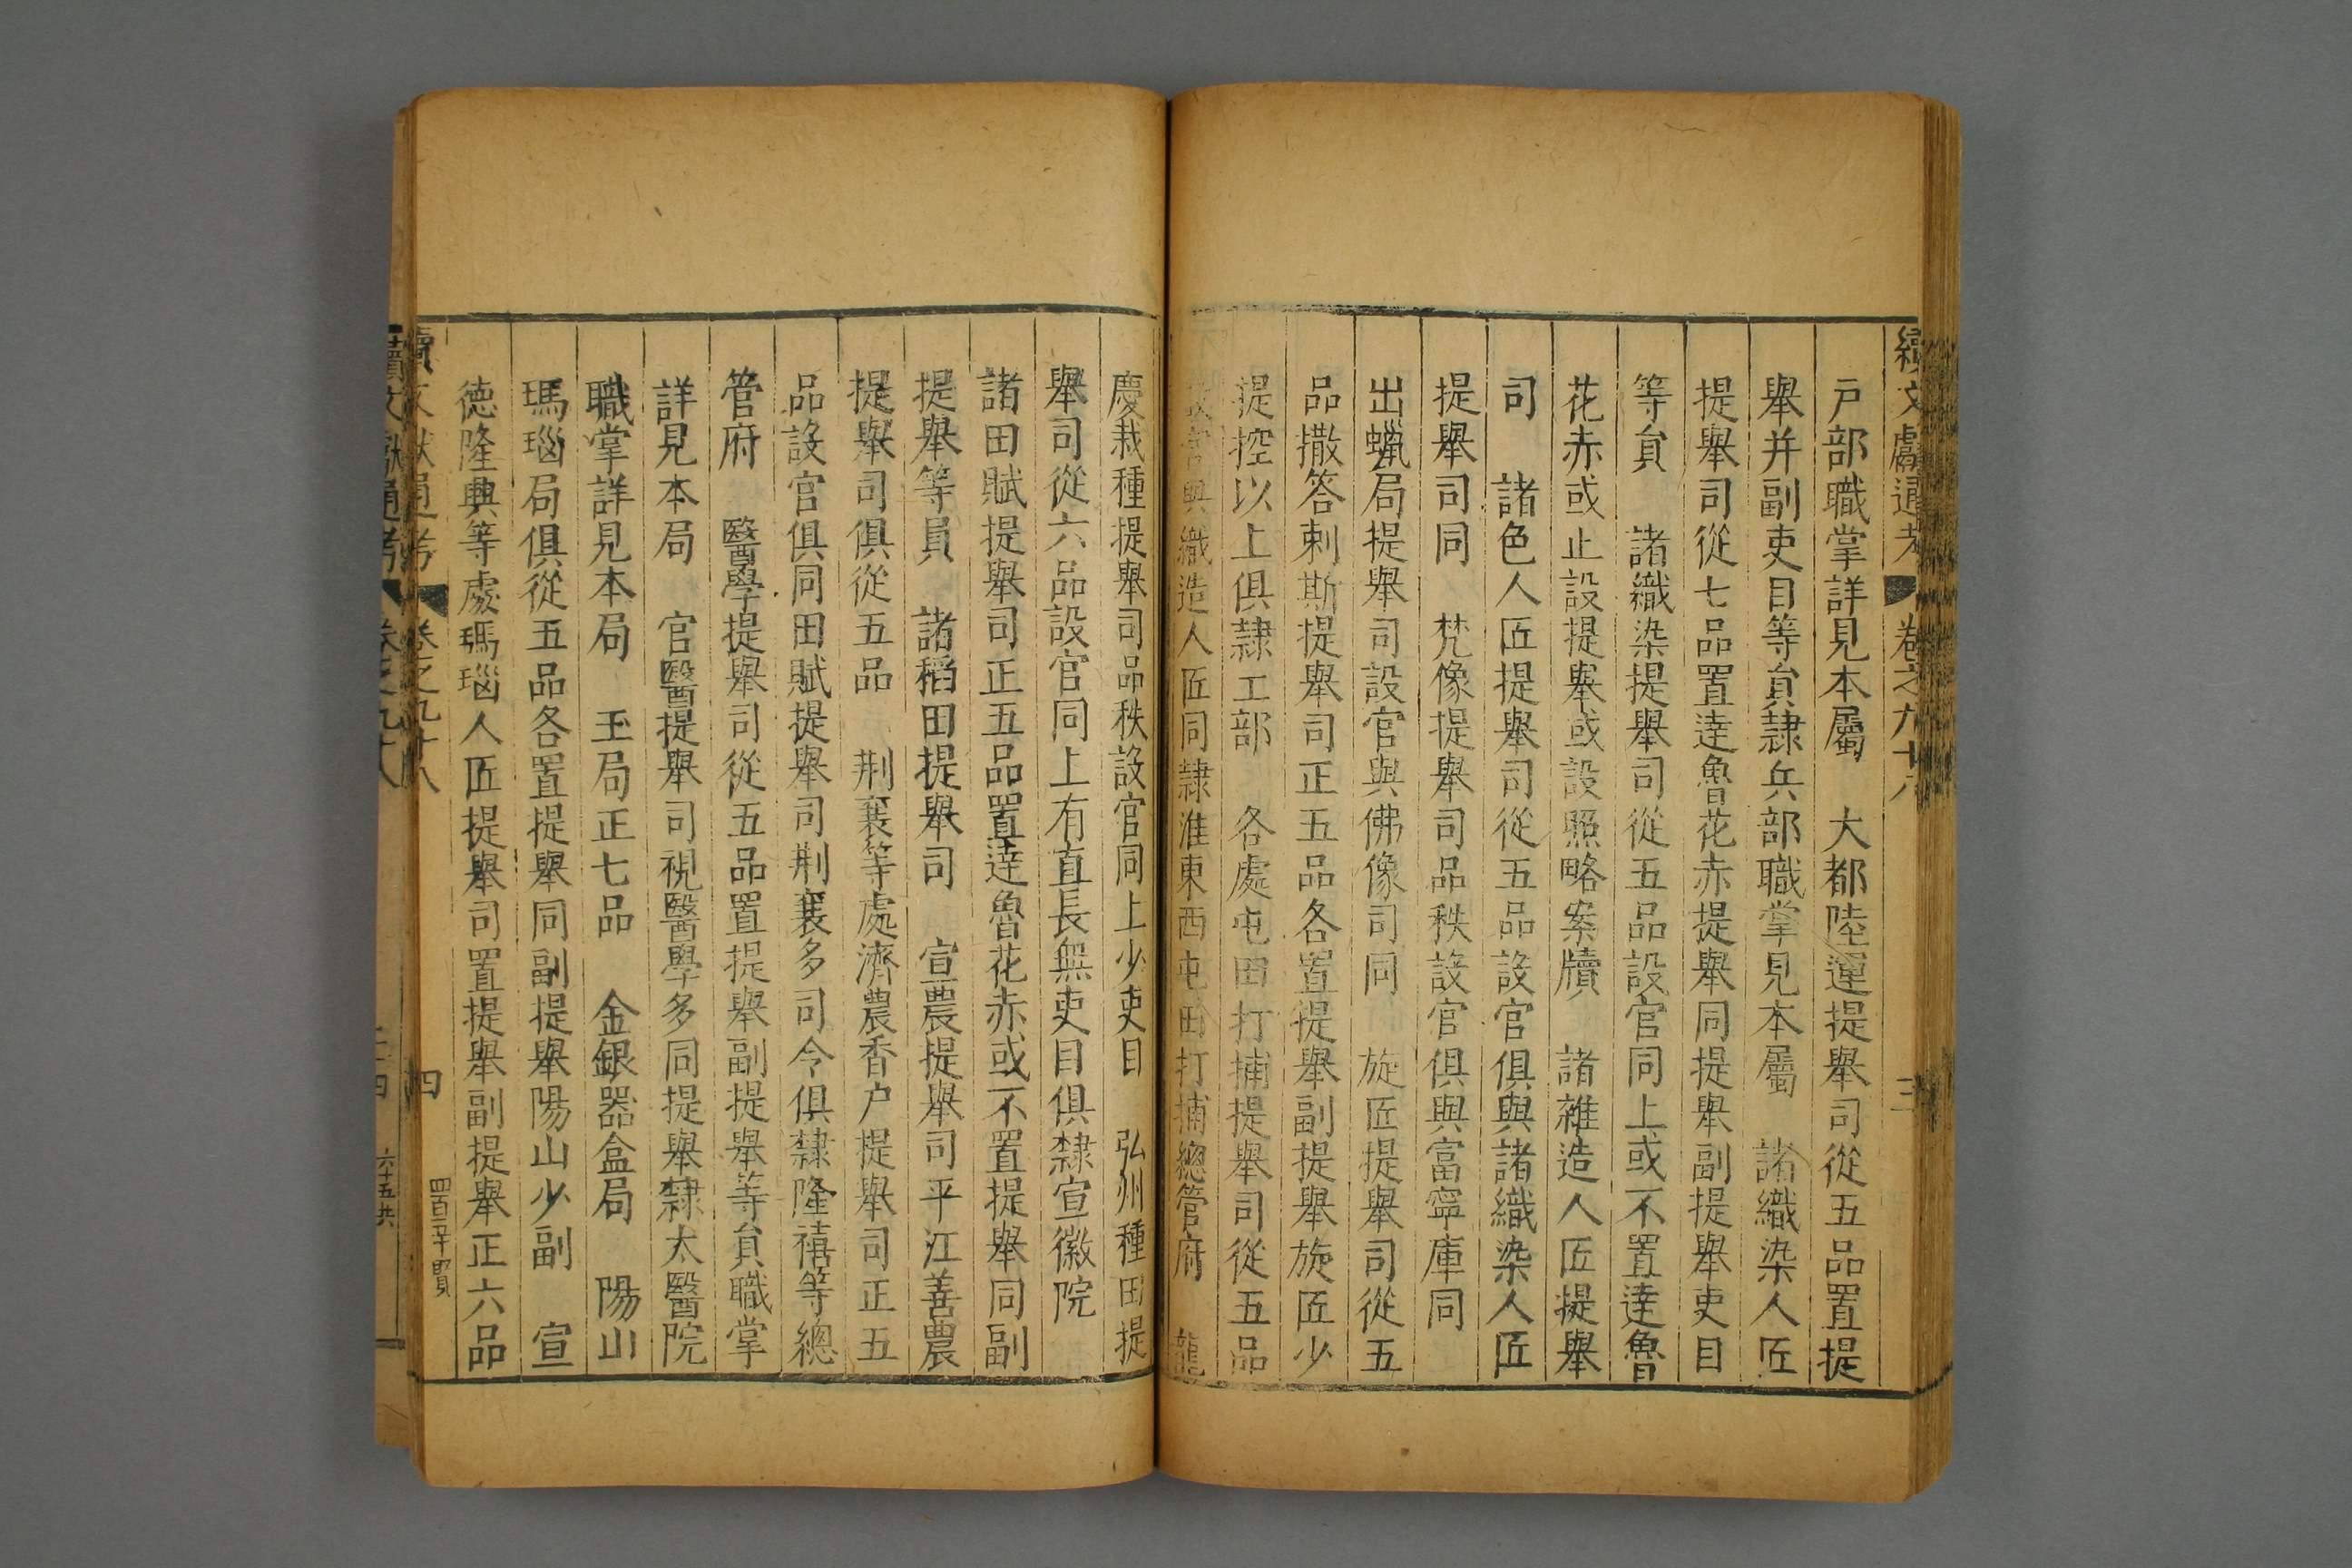 續文獻通考
卷之九十八
三
戸部職掌詳見本屬　大都陸運提舉司從五品置提
舉并副吏目等負隷兵部職掌見本屬　諸織染人匠
提舉司從七品置達魯花赤提舉同提舉副提舉吏目
等負　諸織染提舉司從五品設官同上或不置達魯
花赤或止設提舉或設照略案牘　諸雜造人匠提舉
司　諸色人匠提舉司從五品設官俱與諸織染人匠
提舉司同　梵像提舉司品秩設官俱與富寧庫同
出蠟局提舉司設官與佛像司同　旋匠提舉司從五
品撒答剌斯提舉司正五品各置提舉副提舉旋匠少
提控以上俱隷工部　各處屯田打捕提舉司從五品
設官與織造人匠同隷淮東西屯田打捕總管府　龍
慶栽種提舉司品秩設官同上少吏目　弘州種田提
舉司從六品設官同上有直長無吏目俱隷宣徽院
諸田賦提舉司正五品置達魯花赤或不置提舉同副
提舉等員　諸稻田提舉司　宣農提舉司平江善農
提舉司俱從五品　荆襄等處濟農香户提舉司正五
品設官俱同田賦提舉司荆襄多司令俱隷隆禧等總
管府　醫學提舉司從五品置提舉副提舉等負職掌
詳見本局　官醫提舉司視醫學多同提舉隷太醫院
職掌詳見本局　玉局正七品　金銀器盒局　陽山
瑪瑙局俱從五品各置提舉同副提舉陽山少副　宣
德隆興等處瑪瑙人匠提舉司置提舉副提舉正六品
續文獻通考
卷之九十八
四